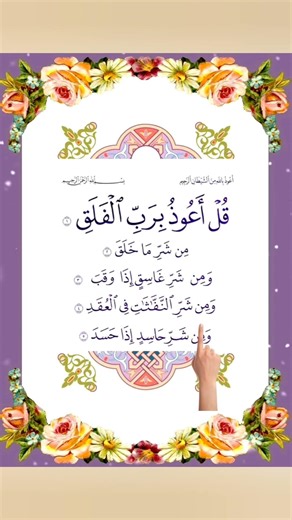 أعوذ بالله من الشيطان الرجيم بسم الله الرحمن الرحيم
قُلْ أَعُوذُ بِرَبِّ ٱلْفَلَقِ ١
مِن شَرِّ مَا خَلَقَ ٢
وَمِن شَرِّ غَاسِقٍ إِذَا وَقَبَ ٣
وَمِن شَرِّ ٱلنَّفَّٰثَٰتِ فِى ٱلْعُقَدِ ٤
وَمِن شَرِّ حَاسِدٍ إِذَا حَسَدَ ٥